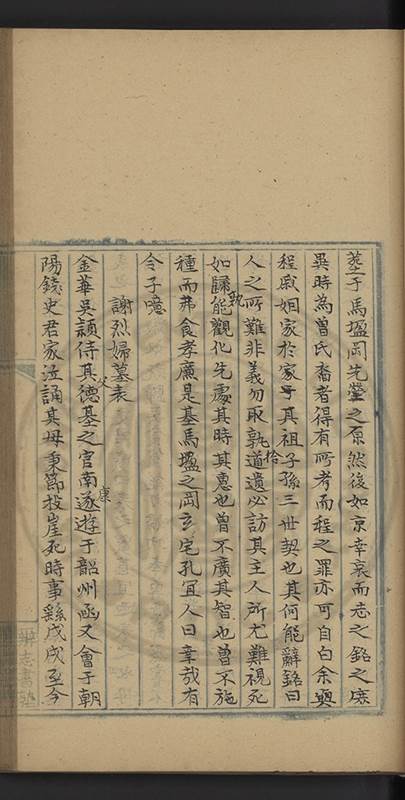 塟于馬塭岡先塋之原然後如京幸哀而志之銘之庶
異時為曾氏裔者得有所考而程之罪亦可自白余與
程戚姻家於家于其祖子孫三世契也其何能辭銘曰
人之所難非義勿取孰拾道遺必訪其主人所尤難視死
如歸孰能觀化先處其時其惠也曾不廣其智也曾不施
種而弗食孝廉是基馬塭之岡玄宅孔冝人曰幸哉有
令子噫
謝烈婦墓表
金華吳頴侍其父德基之官南康遂遊于韶州凾又會于朝
陽錢史君家泣誦其母秉節投崖死時事繇戊戌至今